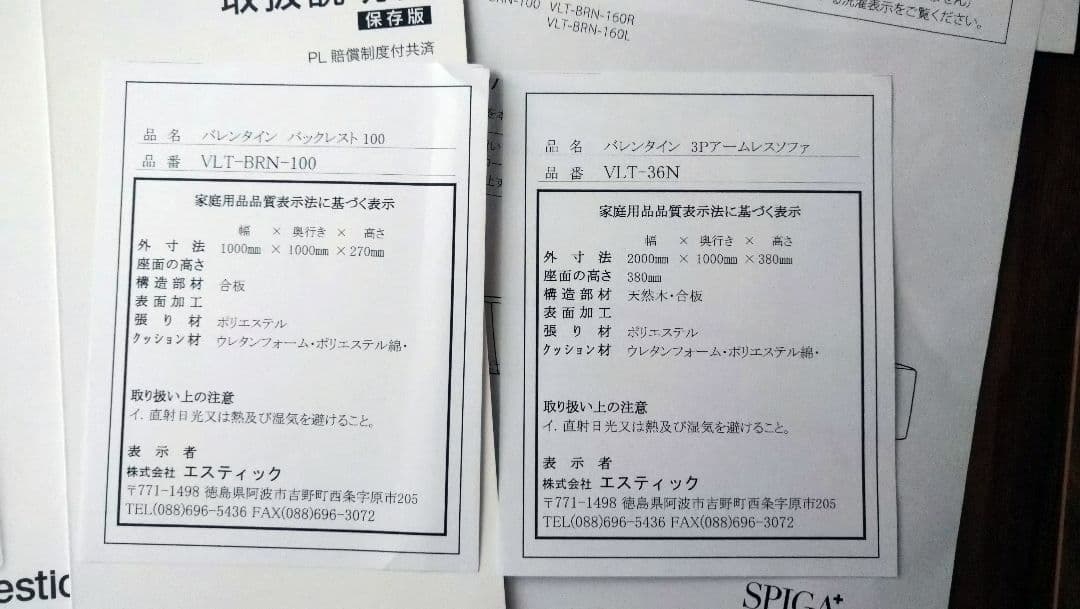 保存版
PL賠償制度付共済
VLT-BRN-160R
VLT-BRN-160L
洗濯表示をご覧ください。
品名 バレンタイン バックレスト100
品番 VLT-BRN-100
家庭用品品質表示法に基づく表示
幅 × 奥行き × 高さ
外寸法 1000㎜ × 1000㎜ × 270㎜
座面の高さ
構造部材 合板
表面加工
張り材 ポリエステル
クッション材 ウレタンフォーム・ポリエステル綿・
取り扱い上の注意
イ. 直射日光又は熱及び湿気を避けること。
表示者
株式会社 エスティック
〒771-1498 徳島県阿波市吉野町西条字原市205
TEL(088)696-5436 FAX(088)696-3072
品名 バレンタイン 3Pアームレスソファ
品番 VLT-36N
家庭用品品質表示法に基づく表示
幅 × 奥行き × 高さ
外寸法 2000㎜ × 1000㎜ × 380㎜
座面の高さ 380㎜
構造部材 天然木・合板
表面加工
張り材 ポリエステル
クッション材 ウレタンフォーム・ポリエステル綿・
取り扱い上の注意
イ. 直射日光又は熱及び湿気を避けること。
表示者
株式会社 エスティック
〒771-1498 徳島県阿波市吉野町西条字原市205
TEL(088)696-5436 FAX(088)696-3072
estic
SPIGA+